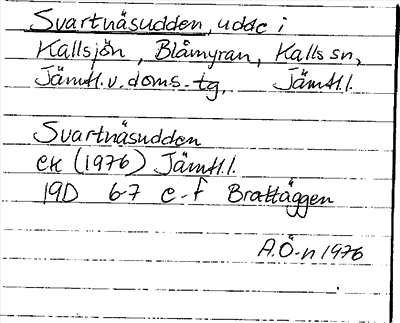 Svartnäsudden, udde i
Kallsjön, Blåmyran, Kalls sn,
Jämtl.v.doms.tg, Jämtl.l.
Svartnäsudden
ek (1976) Jämtl.l.
19D 6-7 e-f Brattäggen
A.Ö-n 1976